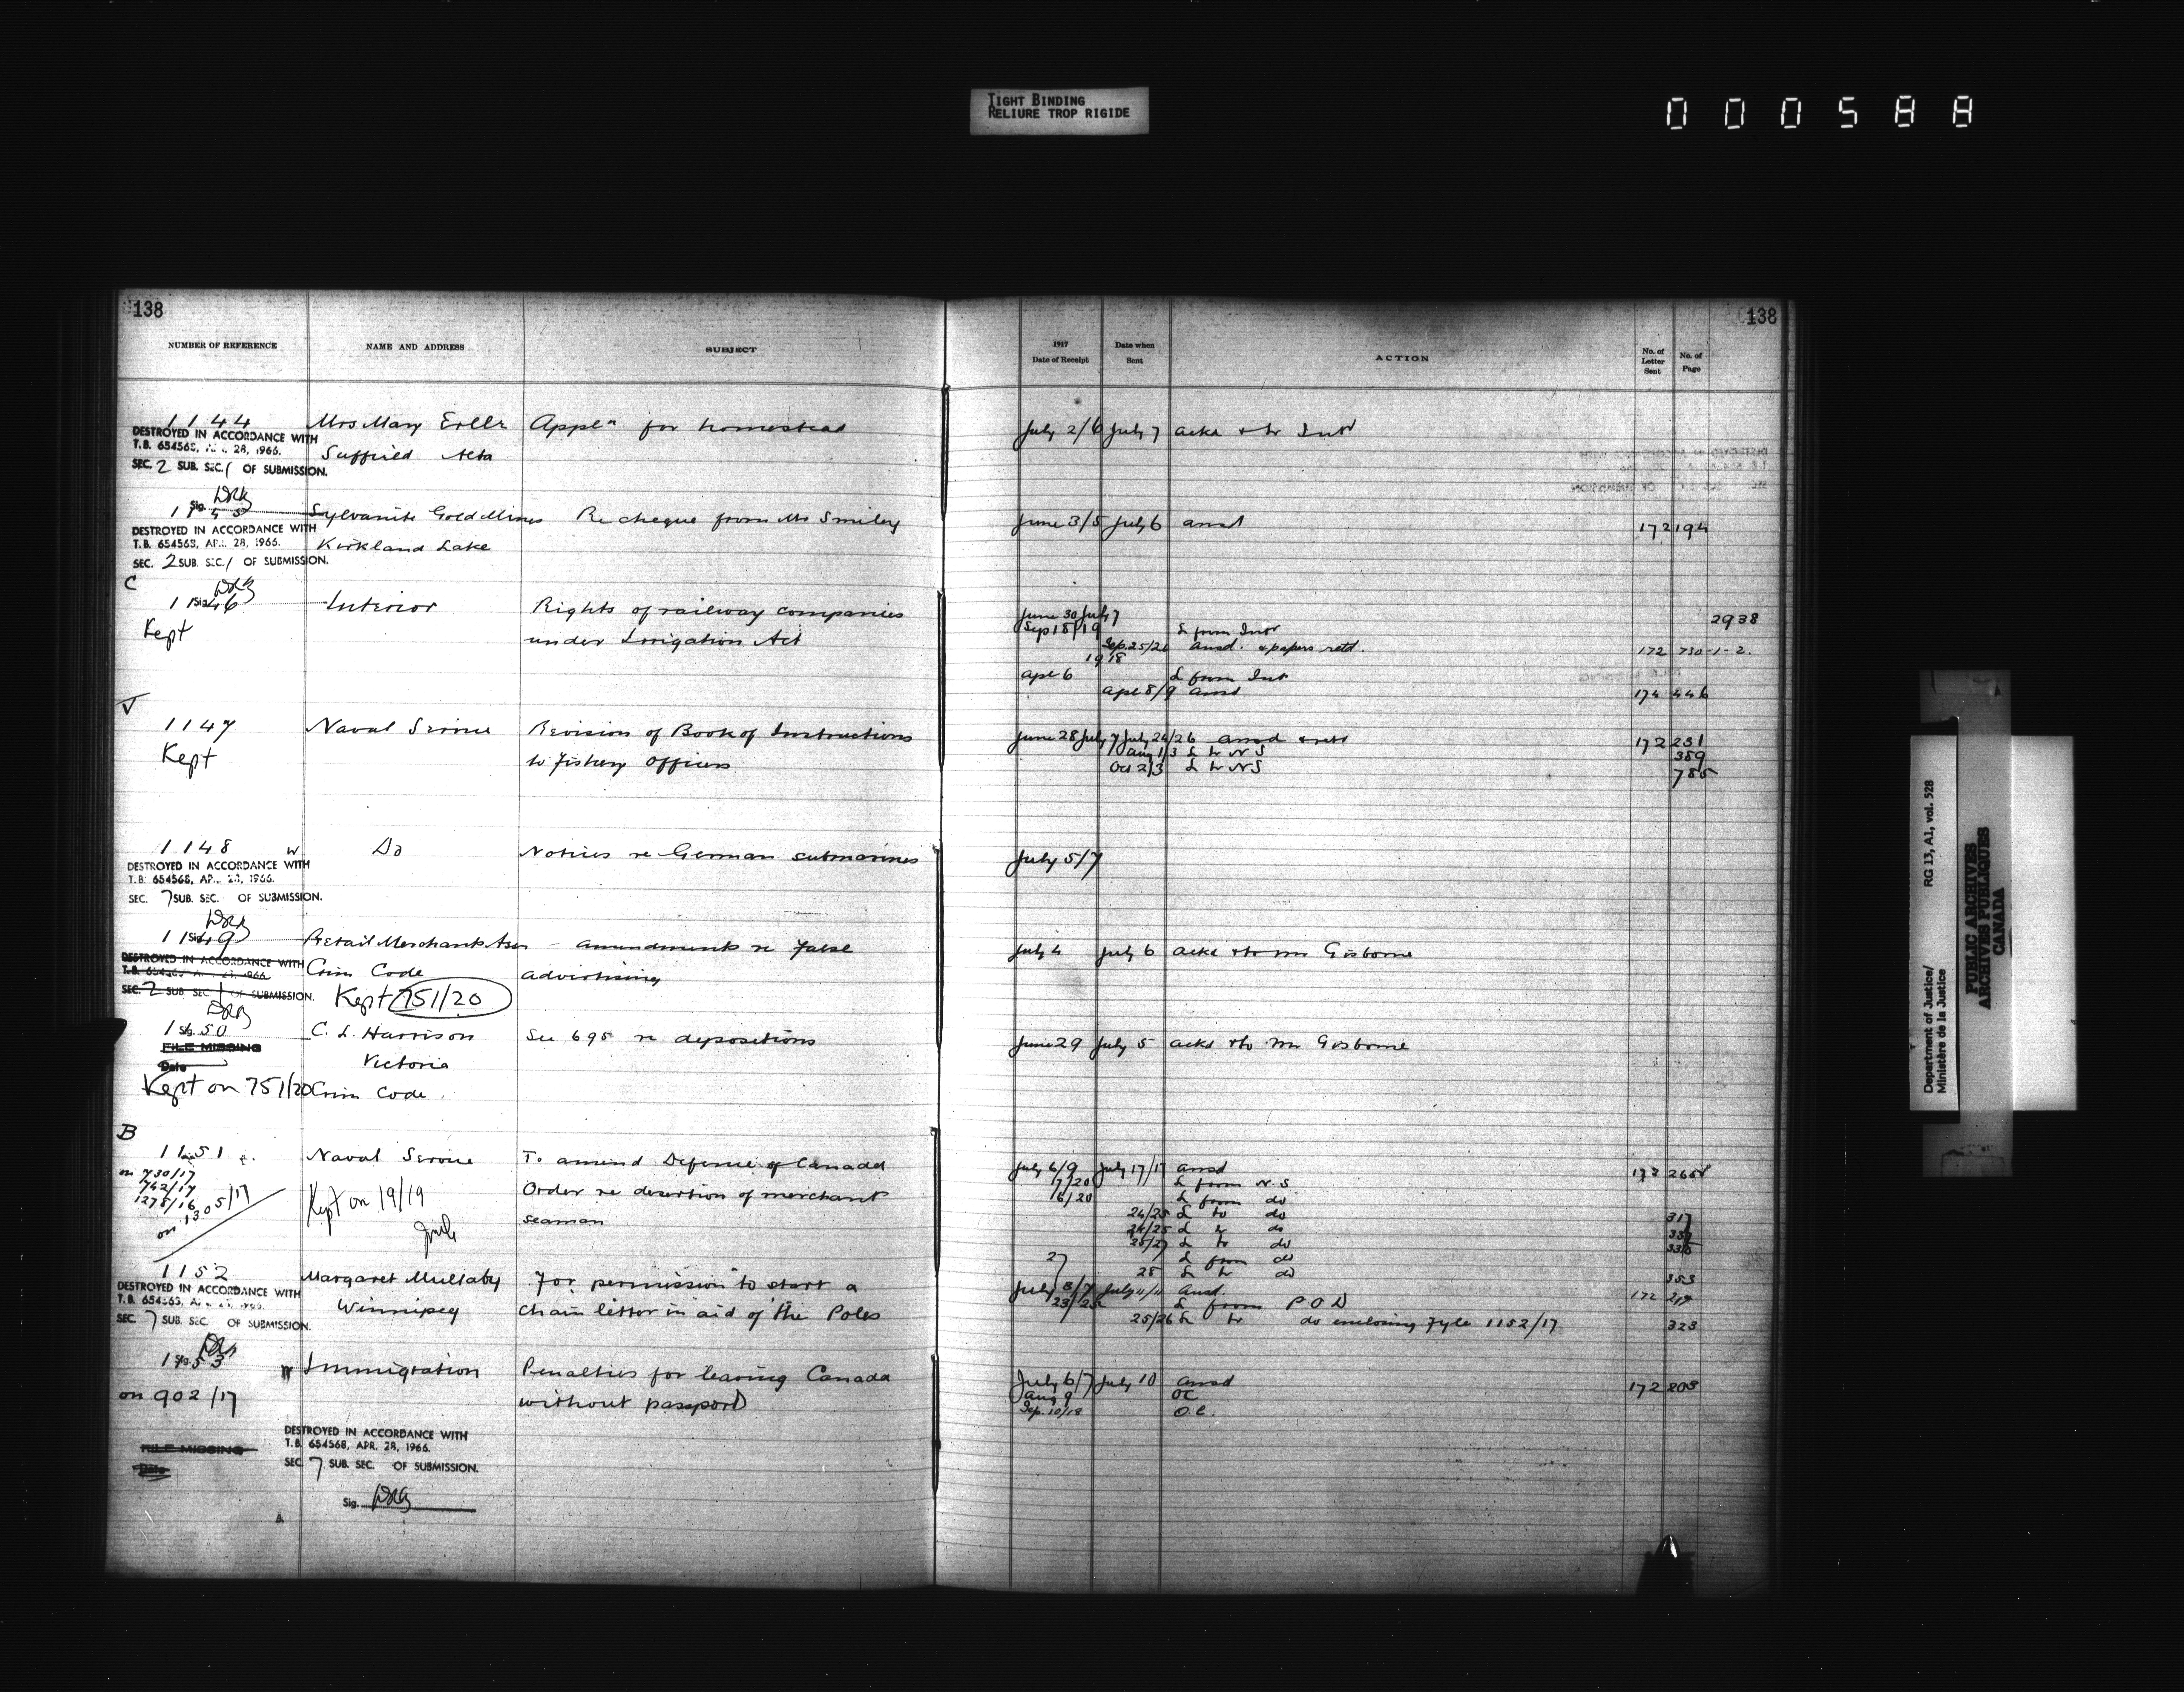 TIGHT BINDING
RELIURE TROP RIGIDE
000588
138
138
NUMBER OF REFERENCE NAME AND ADDRESS SUBJECT 1917 Date of Receipt Date when Sent ACTION No. of Letter Sent No. of Page
1144 Mrs Mary Appln for homestead July 2/6 July 7 ackd & to Intr
DESTROYED IN ACCORDANCE WITH
T.B. 654568, 28, 1966. Suffield Alta
SEC. 2 SUB. SEC. 1 OF SUBMISSION.
Sig. DRB
1145 Sylvanite Gold Mines Re cheque from Mr Smiley June 3/5 July 6 ansd 172 194
DESTROYED IN ACCORDANCE WITH
T.B. 654568, APR. 28, 1966. Kirkland Lake
SEC. 2 SUB. SEC. 1 OF SUBMISSION.
C
Sig. DRB
1146 Interior Rights of railway companies June 30 July 7 2938
Kept under Irrigation Act Sep 18/19 L from Intr
Sep. 25/26 ansd. & papers retd. 172 730-1-2.
1918
apl 6 L from Int
apl 8/9 ansd 174 446
1147 Naval Service Revision of Book of Instructions June 28 July 7 July 24/26 ansd & retd 172 251
Kept to Fishery Officers Aug 1/3 L to N S 389
Oct 2/3 L to N S 785
1148 W Do Notices re German submarines July 5/7
DESTROYED IN ACCORDANCE WITH
T.B. 654568, 1966.
SEC. 7 SUB. SEC. OF SUBMISSION.
Sig. DRB
1149 Retail Merchants Assn - amendments re false July 4 July 6 ackd & to Mr Gisborne
DESTROYED IN ACCORDANCE WITH Crim Code advertising
T.B. 1966
SEC. 2 SUB. SEC. 1 OF SUBMISSION. Kept 751/20
Sig. DRB
1150 C. L. Harrison See 695 re depositions June 29 July 5 ackd & to Mr Gisborne
FILE MISSING
Date Victoria
Kept on 751/20 Crim Code
B
1151 Naval Service To amend Defence of Canada July 6/9 July 17/17 ansd 172 265
on 730/17 Order re desertion of merchant 17/20 L from N.S
742/17 Kept on 19/19 seaman 16/20 L from do
1278/16 24/25 L to do 317
on 1305/17 24/25 L to do
25/27 L to do
27 L from do
28 L to do 353
1152 Margaret Mullaby For permission to start a July 5/7 July 11/11 Ansd. 172 217
DESTROYED IN ACCORDANCE WITH
Winnipeg chain letter in aid of the Poles 23/25 L from P O D
SEC. 7 SUB. SEC. OF SUBMISSION. 25/26 L to do enclosing fyle 1152/17 323
Sig. DRB
1153 Immigration Penalties for leaving Canada July 6/7 July 10 ansd 172 203
on 902/17 without passport Aug 9 OC
Sep. 10/18 O.C.
FILE MISSING
Date
DESTROYED IN ACCORDANCE WITH
T.B. 654568, APR. 28, 1966.
SEC. 7 SUB. SEC. OF SUBMISSION.
Sig. DRB
Department of Justice/ RG 13, A1, vol. 528
Ministère de la Justice
PUBLIC ARCHIVES
ARCHIVES PUBLIQUES
CANADA